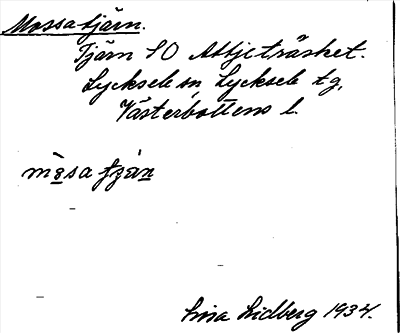 Mossatjärn.
Tjärn SO Abbjeträsket.
Lycksele sn, Lycksele tg,
Västerbottens l.
mòsa tján
Lisa Lidberg 1934.